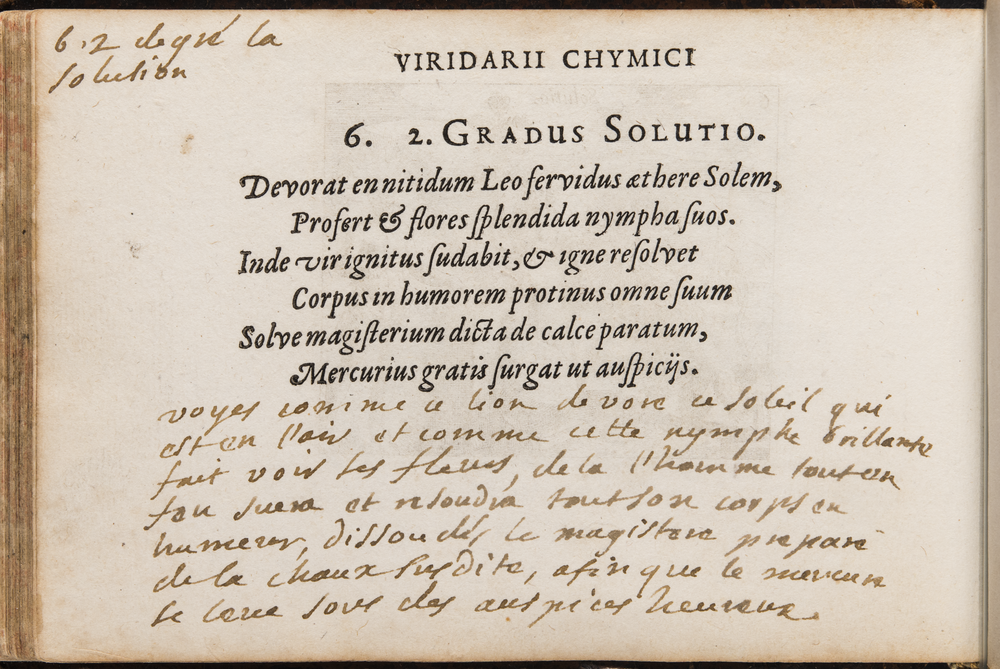 6. 2 degré la
solution
VIRIDARII CHYMICI
6. 2. GRADUS SOLUTIO.
Devorat en nitidum Leo fervidus æthere Solem,
Profert & flores ſplendida nympha ſuos.
Inde vir ignitus ſudabit, & igne reſolvet
Corpus in humorem protinus omne ſuum
Solve magiſterium dicta de calce paratum,
Mercurius gratis ſurgat ut auſpicijs.
voyes comme ce lion devore ce soleil qui
est en l'air et comme cette nymphe brillante
fait voir ses fleurs, de la l'homme tout en
feu suera et resoudra tout son corps en
humeur, dissoudes le magistere preparé
de la chaux susdite, afin que le mercure
se leve sous des auspices heureux.